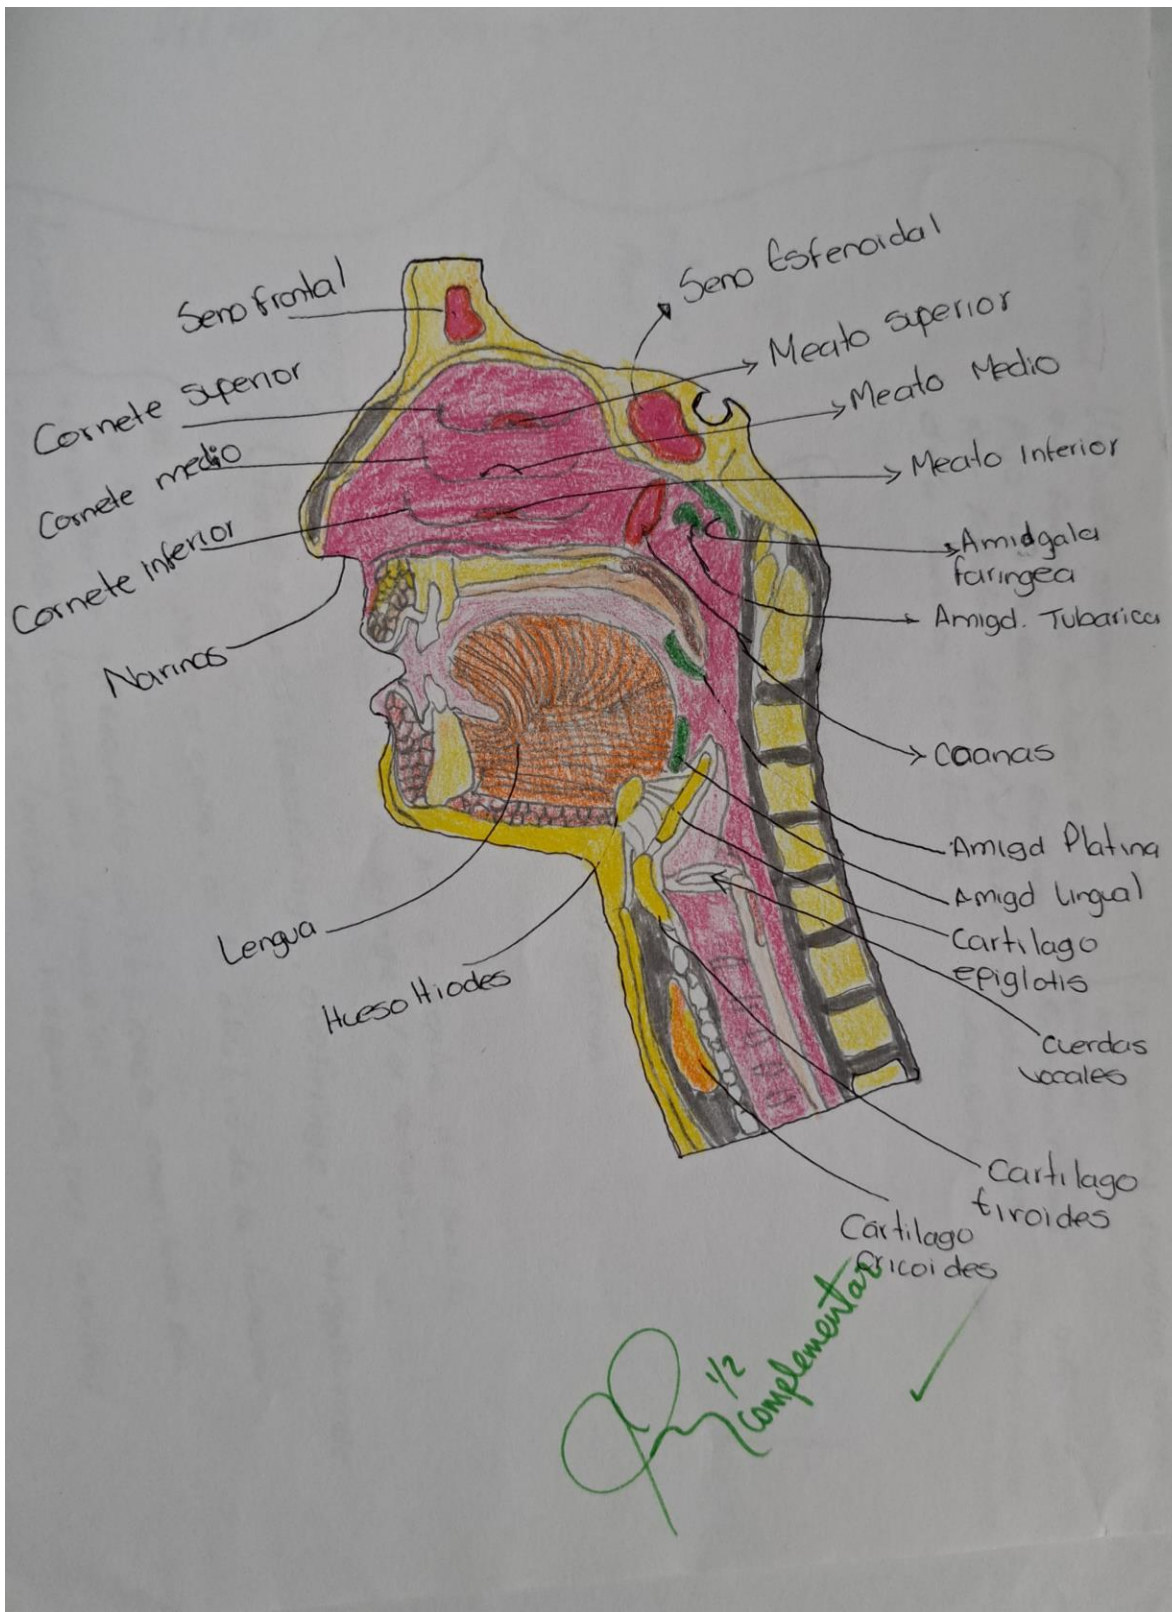 Seno frontal
Cornete superior
Cornete medio
Cornete inferior
Narinas
Lengua
Hueso Hiodes
Seno Esfenoidal
Meato superior
Meato Medio
Meato Inferior
Amidgala
faringea
Amigd. Tubarica
Coanas
Amigd Platina
Amigd lingual
Cartilago
epiglotis
cuerdas
vocales
Cartilago
tiroides
Cartilago
cricoides
1/2
Complementar